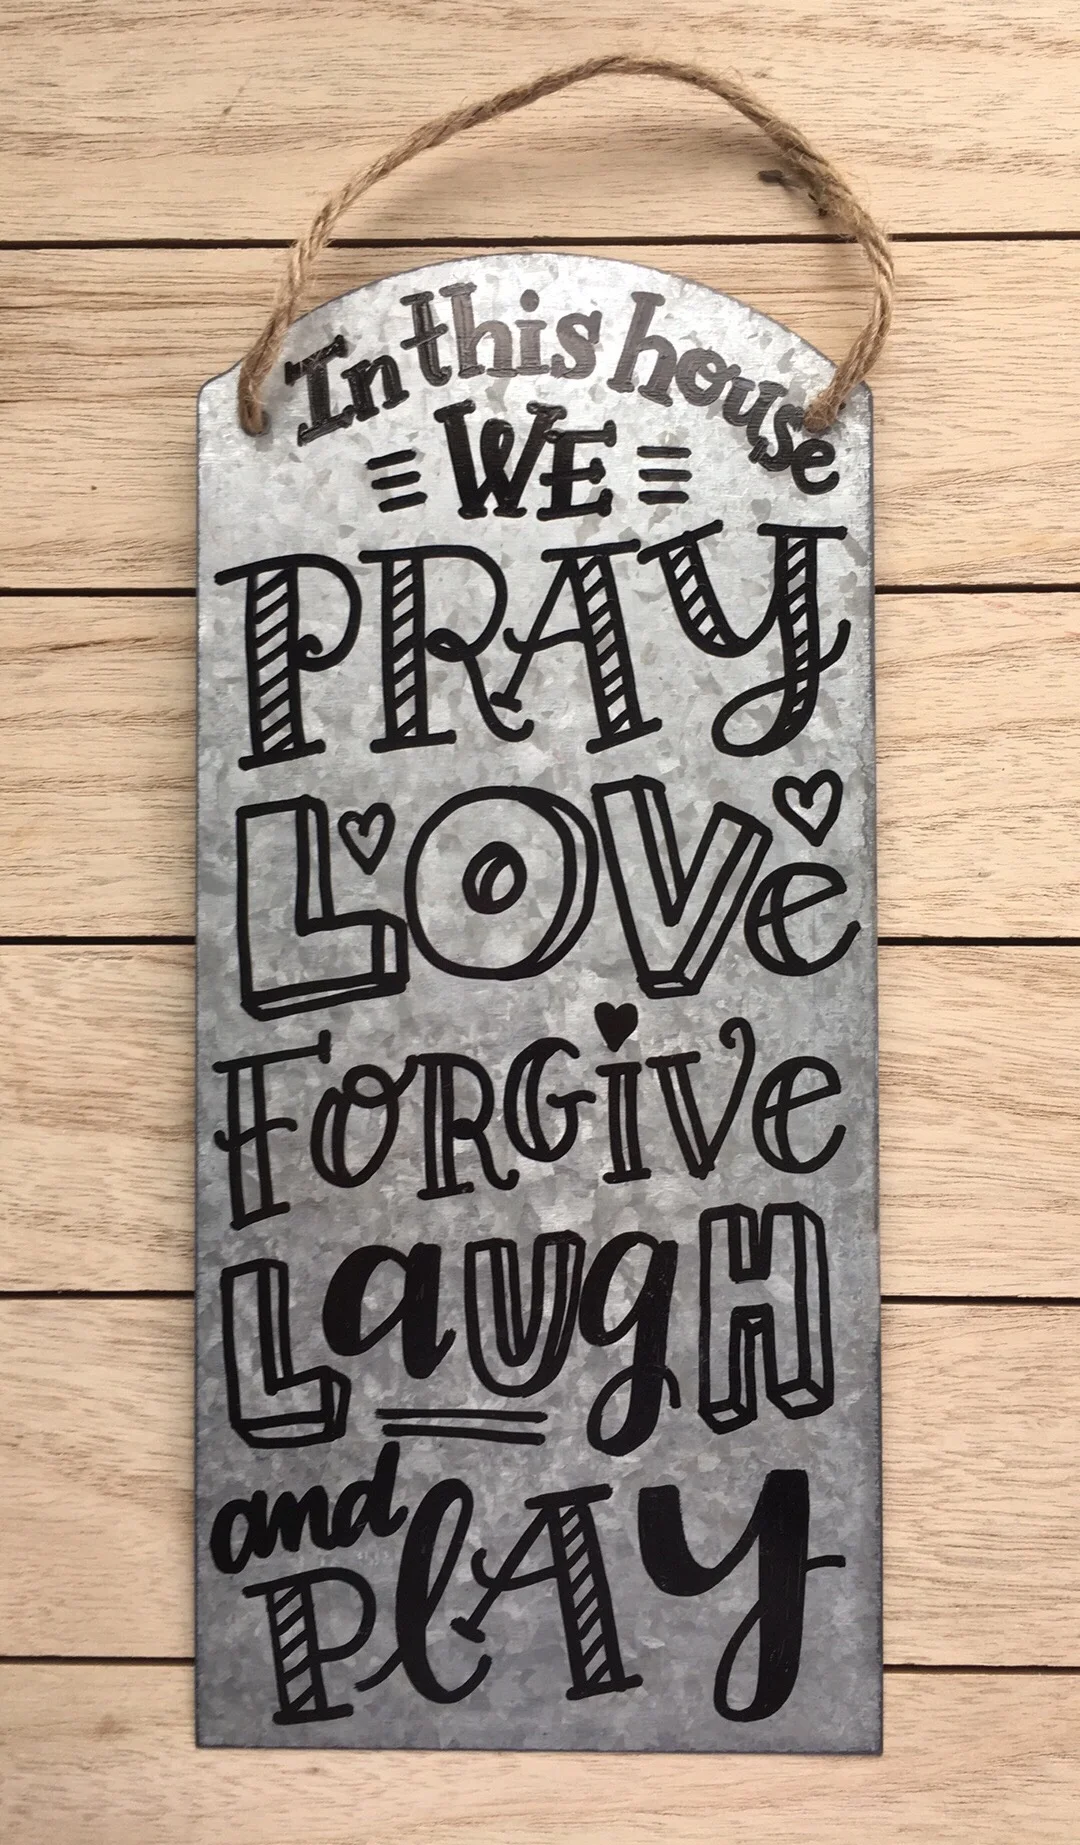 In this house
WE
PRAY
LOVe
FORGiVe
LaUgH
and
PlAy